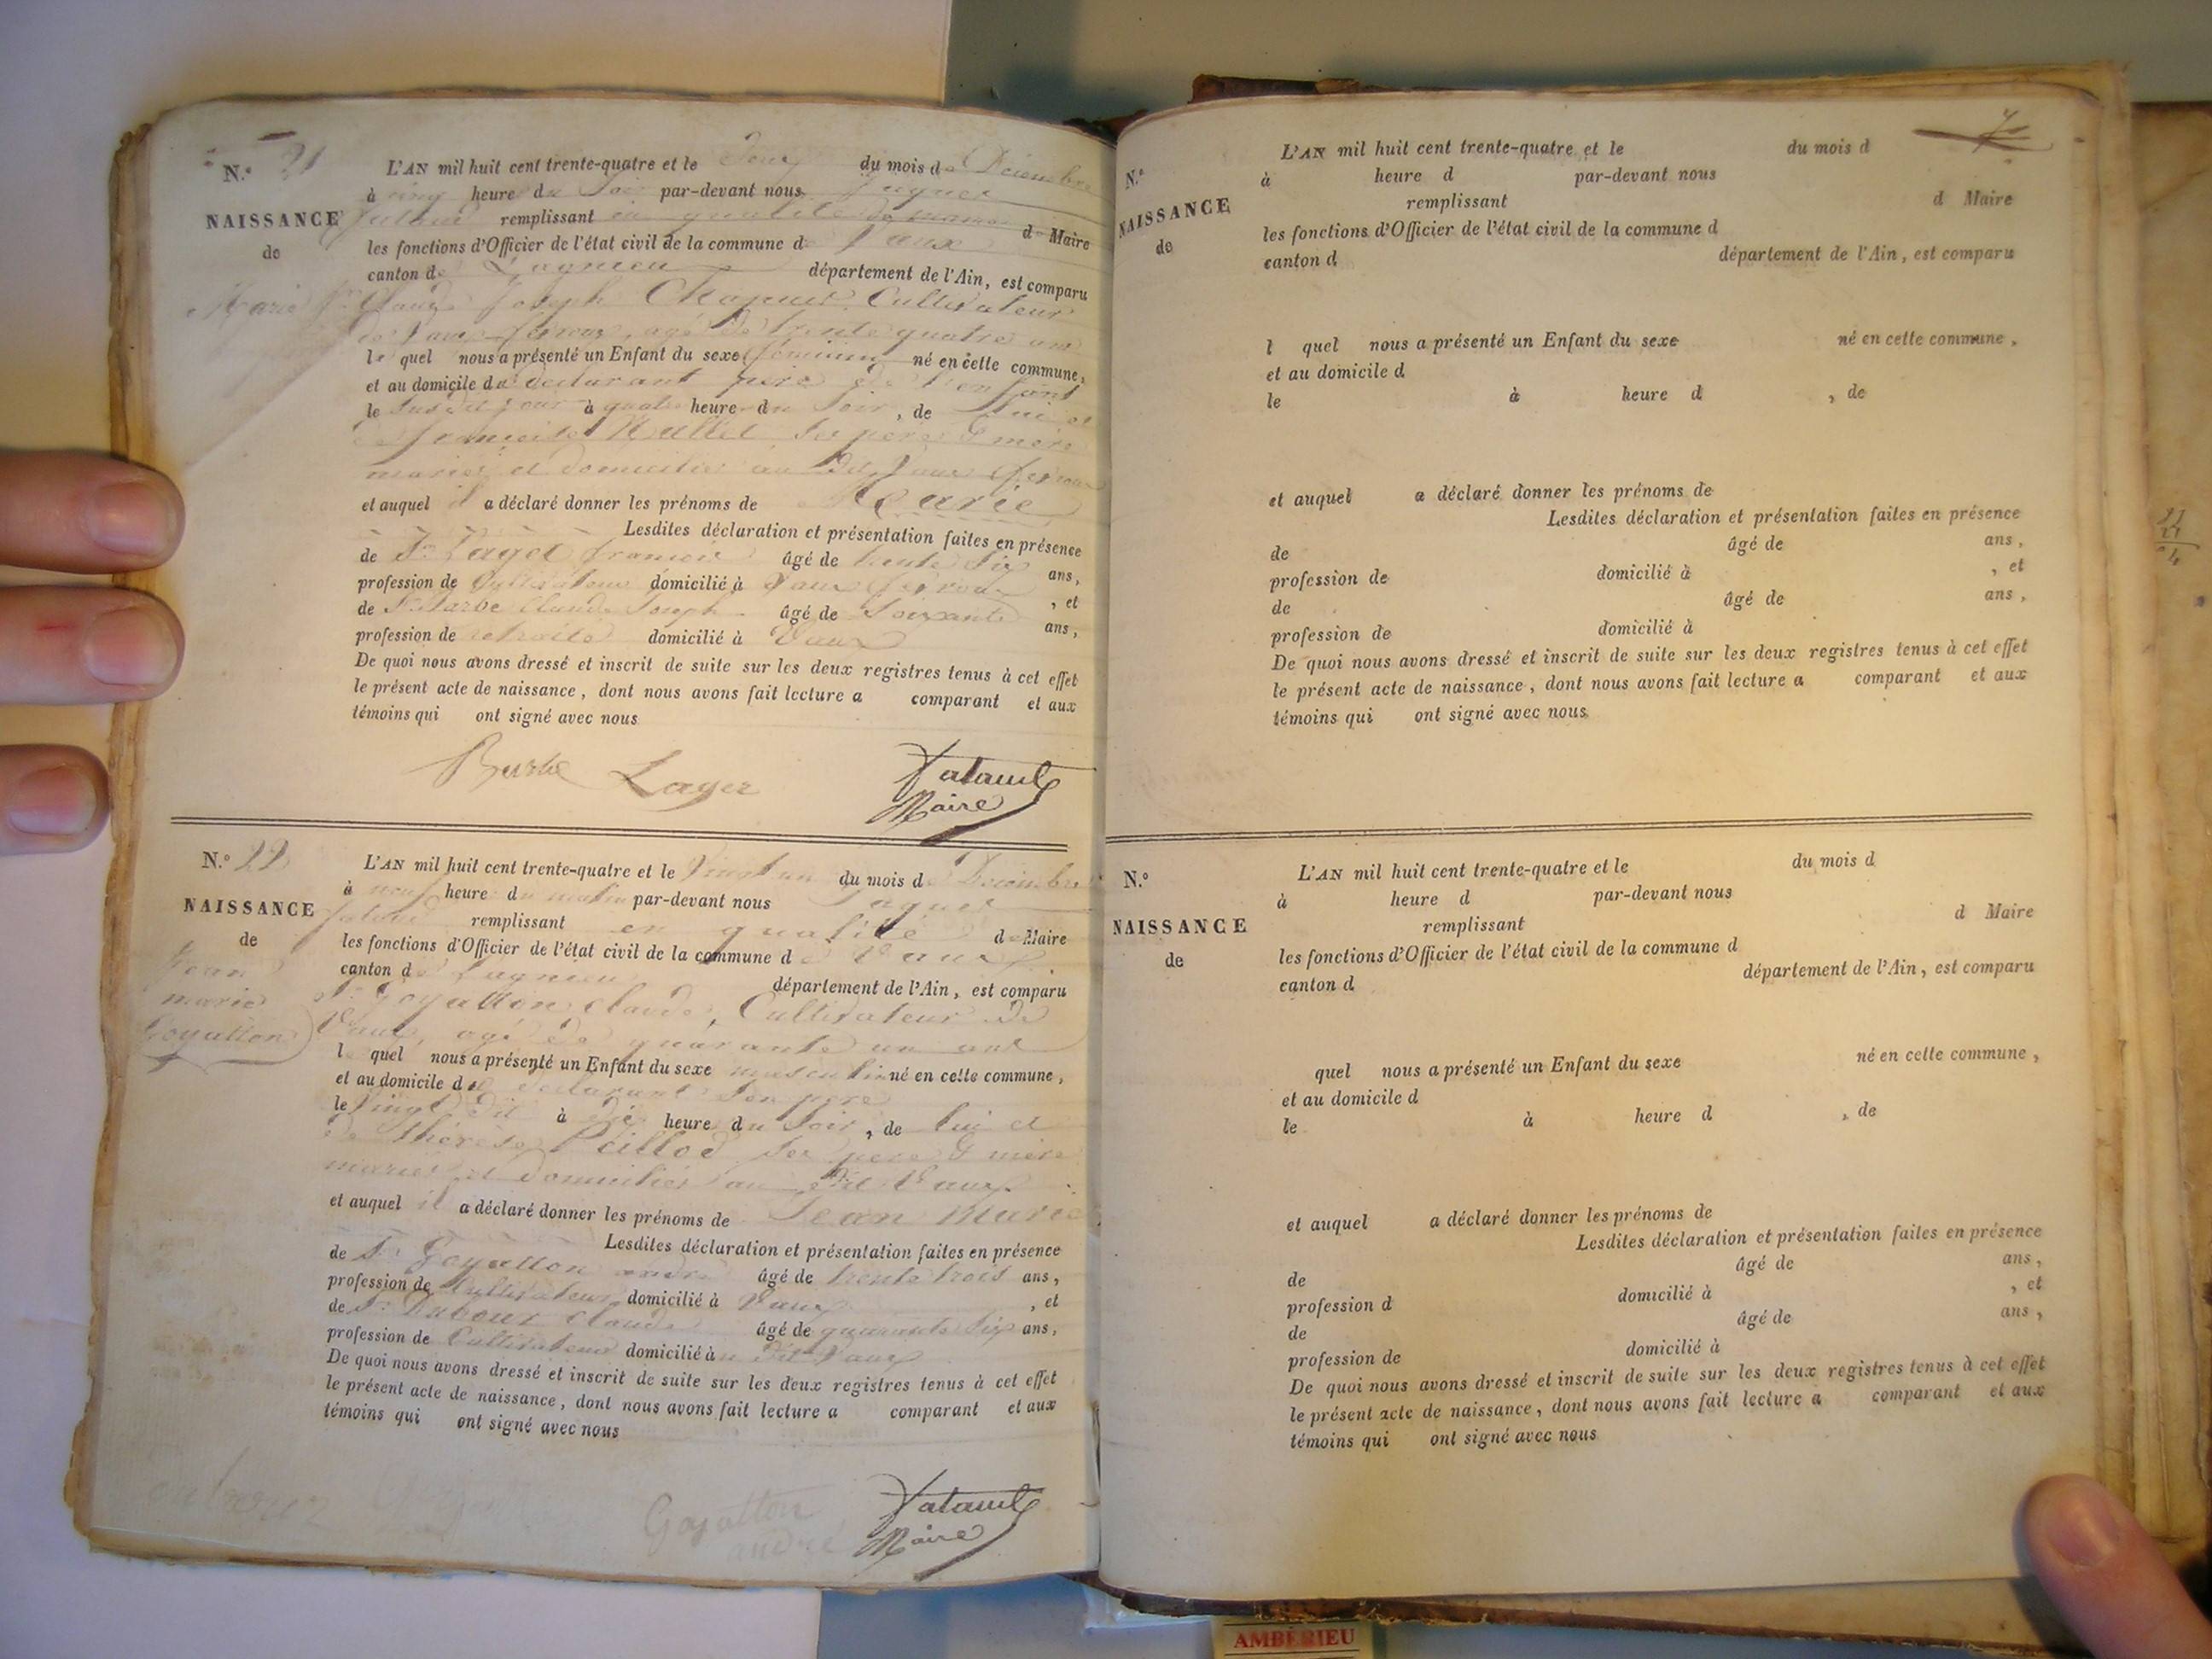 N.° 21
NAISSANCE
de
Marie
L'AN mil huit cent trente-quatre et le du mois de Décembre
à cinq heure du Soir par-devant nous
remplissant en qualité de Maire
les fonctions d'Officier de l'état civil de la commune de Vaux
canton de Lagnieu département de l'Ain, est comparu
Joseph Cultivateur
agé de trente quatre ans
le quel nous a présenté un Enfant du sexe féminin né en cette commune,
et au domicile du déclarant père de l'enfant
le susdit jour à quatre heure du Soir, de lui et
de françoise Mullet ses père & mère
mariés et domiciliés au dit Vaux
et auquel il a déclaré donner les prénoms de Marie
Lesdites déclaration et présentation faites en présence
de Sr Lager françois âgé de trente six ans,
profession de Cultivateur domicilié à Vaux , et
de Sr Barbe Claude Joseph âgé de Soixante ans,
profession de retraité domicilié à Vaux
De quoi nous avons dressé et inscrit de suite sur les deux registres tenus à cet effet
le présent acte de naissance, dont nous avons fait lecture a comparant et aux
témoins qui ont signé avec nous
Barbe Lager
Maire
N.° 22
NAISSANCE
de
Jean
marie
Goyatton
L'AN mil huit cent trente-quatre et le Vingt un du mois de Décembre
à neuf heure du matin par-devant nous
remplissant en qualité de Maire
les fonctions d'Officier de l'état civil de la commune de Vaux
canton de Lagnieu département de l'Ain, est comparu
Sr Goyatton Claude, Cultivateur de
Vaux, agé de quarante un ans
l quel nous a présenté un Enfant du sexe masculin né en cette commune,
et au domicile du déclarant son père
le Vingt dit à dix heure du Soir, de lui et
de thérèse Peillod ses père & mère
mariés et domiciliés au dit Vaux
et auquel il a déclaré donner les prénoms de Jean Marie
Lesdites déclaration et présentation faites en présence
de Sr Goyatton andré âgé de trente trois ans,
profession de Cultivateur domicilié à Vaux , et
de Sr Claude âgé de quarante six ans,
profession de Cultivateur domicilié à dit Vaux
De quoi nous avons dressé et inscrit de suite sur les deux registres tenus à cet effet
le présent acte de naissance, dont nous avons fait lecture a comparant et aux
témoins qui ont signé avec nous
Goyatton
andré
Maire
N.°
NAISSANCE
de
L'AN mil huit cent trente-quatre et le du mois d
à heure d par-devant nous
remplissant d Maire
les fonctions d'Officier de l'état civil de la commune d
canton d département de l'Ain, est comparu
l quel nous a présenté un Enfant du sexe né en cette commune,
et au domicile d
le à heure d , de
et auquel a déclaré donner les prénoms de
Lesdites déclaration et présentation faites en présence
de âgé de ans,
profession de domicilié à , et
de âgé de ans,
profession de domicilié à
De quoi nous avons dressé et inscrit de suite sur les deux registres tenus à cet effet
le présent acte de naissance, dont nous avons fait lecture a comparant et aux
témoins qui ont signé avec nous
N.°
NAISSANCE
de
L'AN mil huit cent trente-quatre et le du mois d
à heure d par-devant nous
remplissant d Maire
les fonctions d'Officier de l'état civil de la commune d
canton d département de l'Ain, est comparu
quel nous a présenté un Enfant du sexe né en cette commune,
et au domicile d
le à heure d , de
et auquel a déclaré donner les prénoms de
Lesdites déclaration et présentation faites en présence
de âgé de ans,
profession d domicilié à , et
de âgé de ans,
profession de domicilié à
De quoi nous avons dressé et inscrit de suite sur les deux registres tenus à cet effet
le présent acte de naissance, dont nous avons fait lecture a comparant et aux
témoins qui ont signé avec nous
AMBÉRIEU